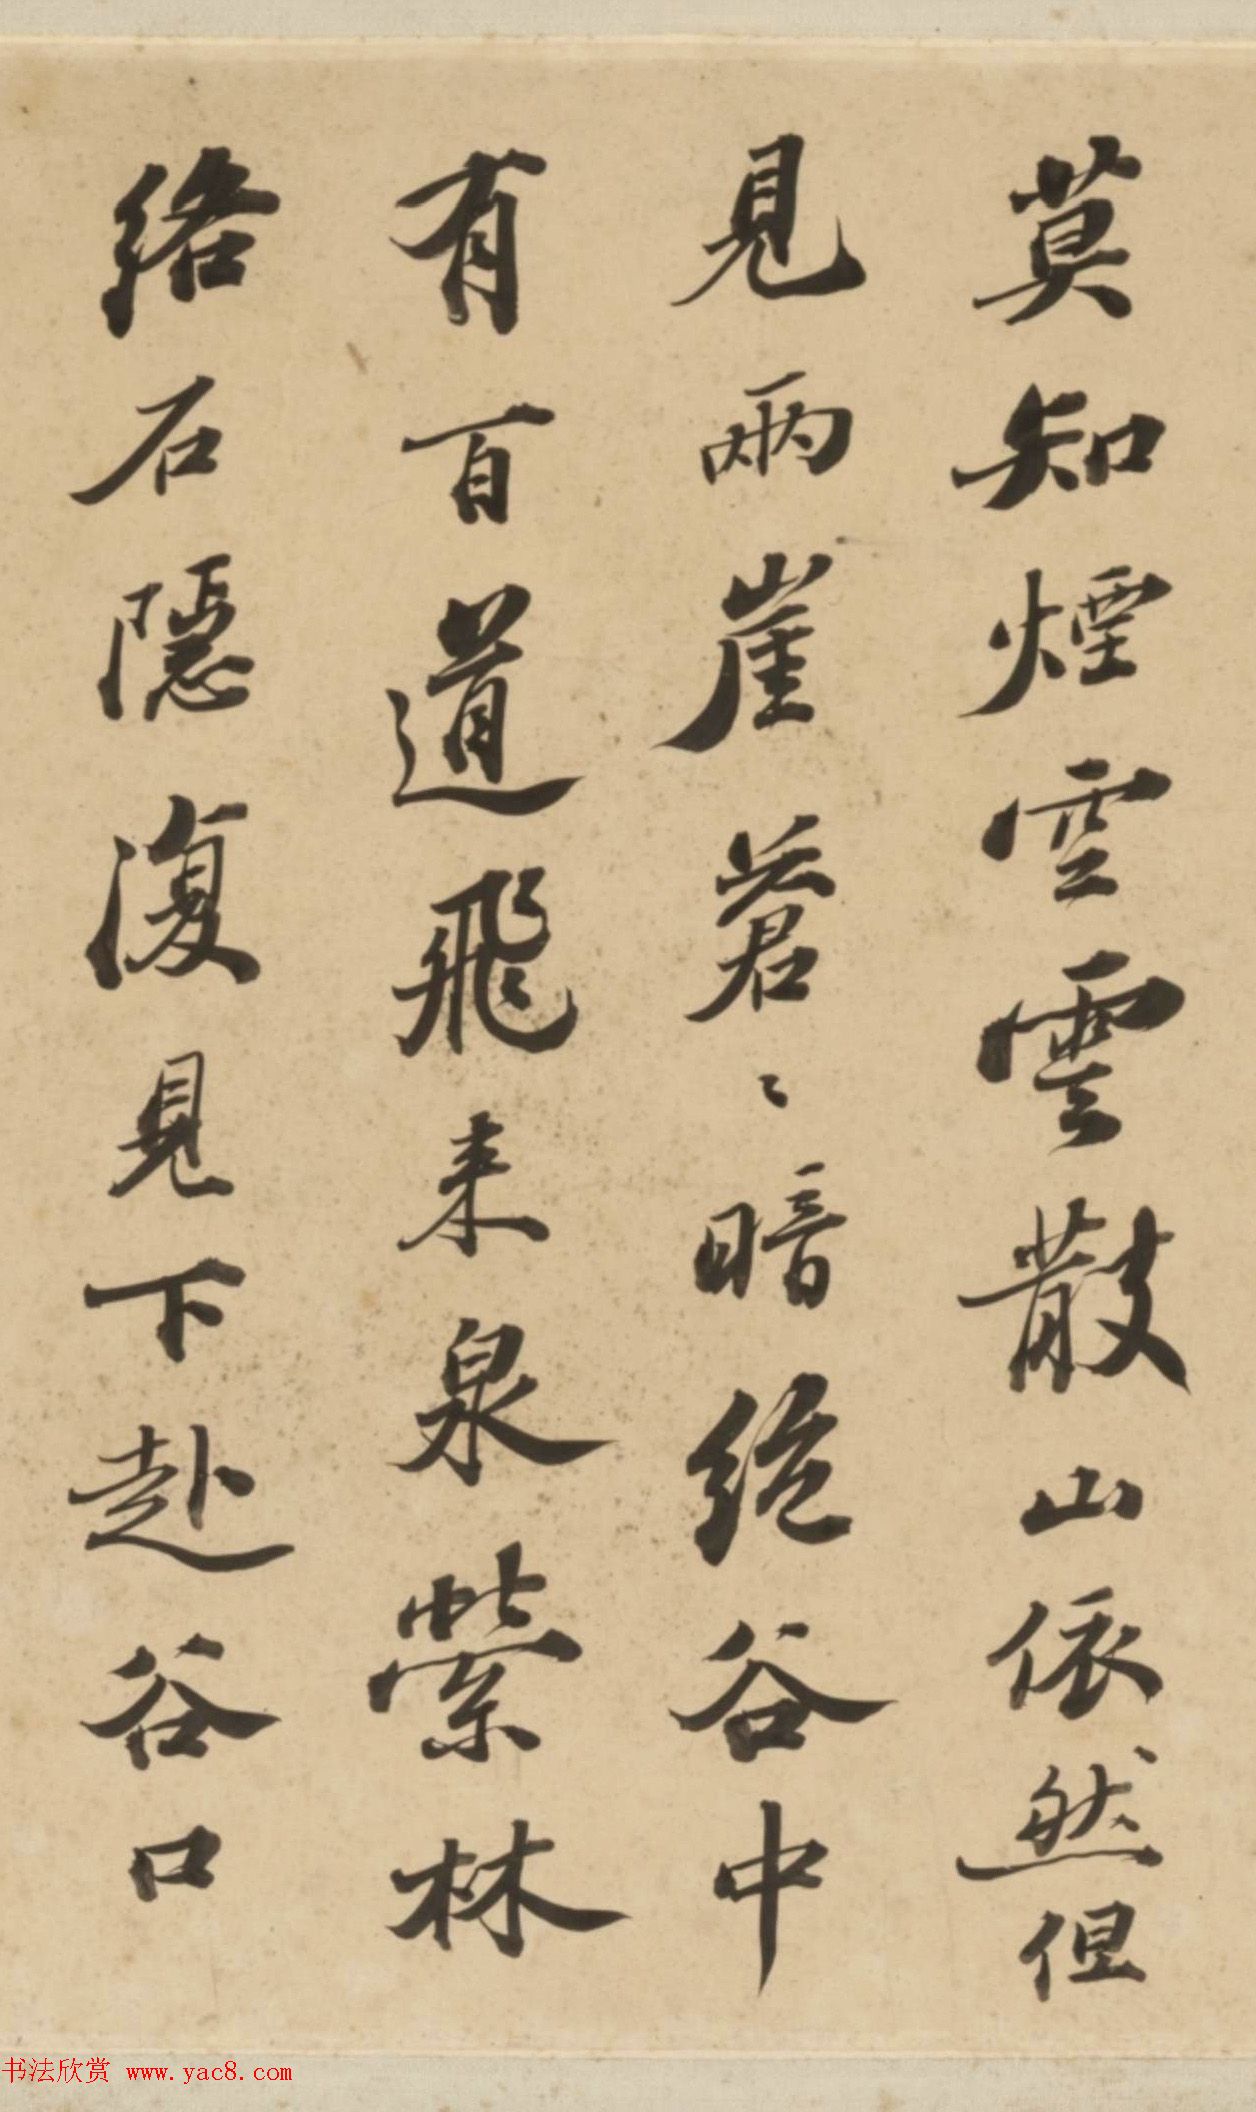 莫知煙空雲散山依然但
見兩崖蒼〻暗絶谷中
有百道飛来泉縈林
絡石隱復見下赴谷口
书法欣赏 www.yac8.com